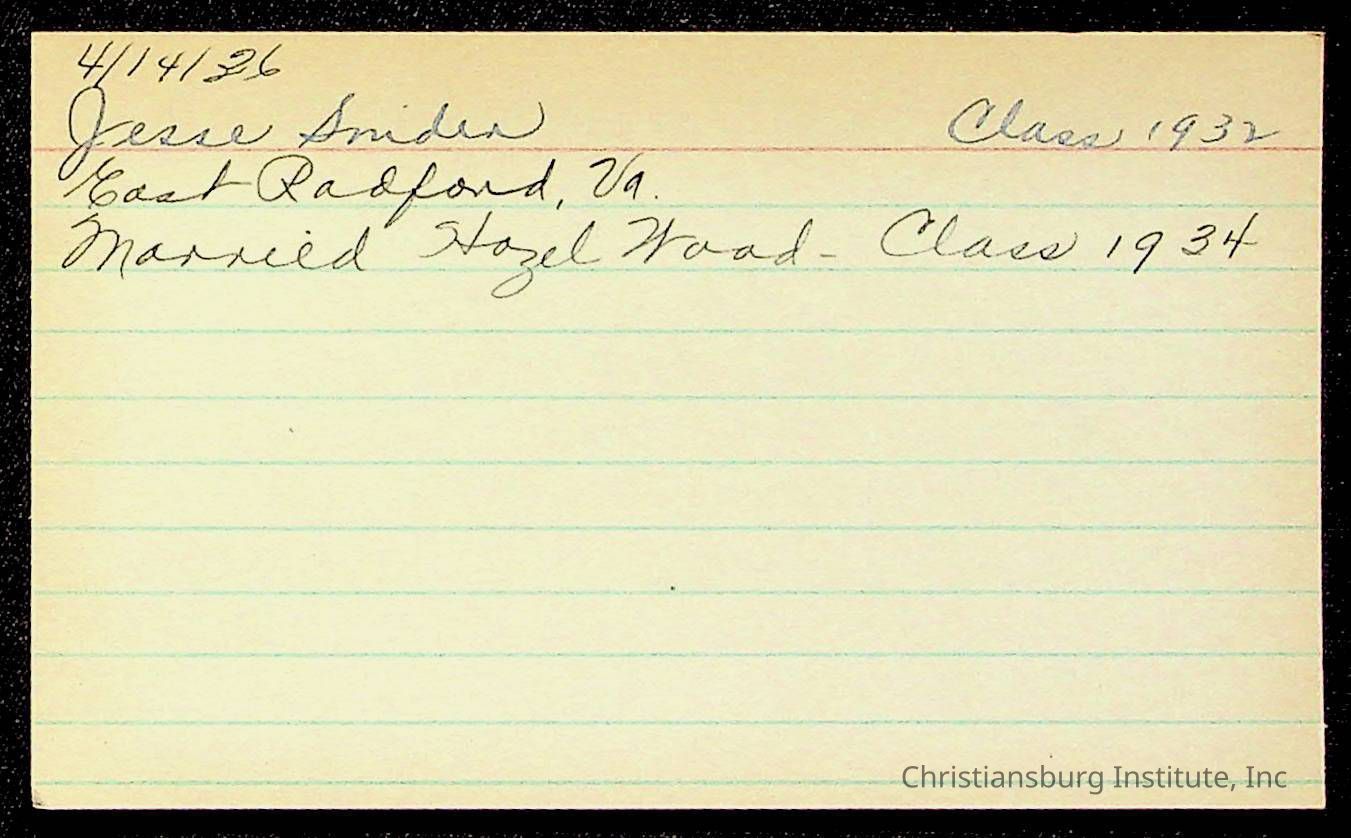 4/14/36
Jesse Snider Class 1932
East Radford, Va.
Married Hazel Wood - Class 1934
Christiansburg Institute, Inc